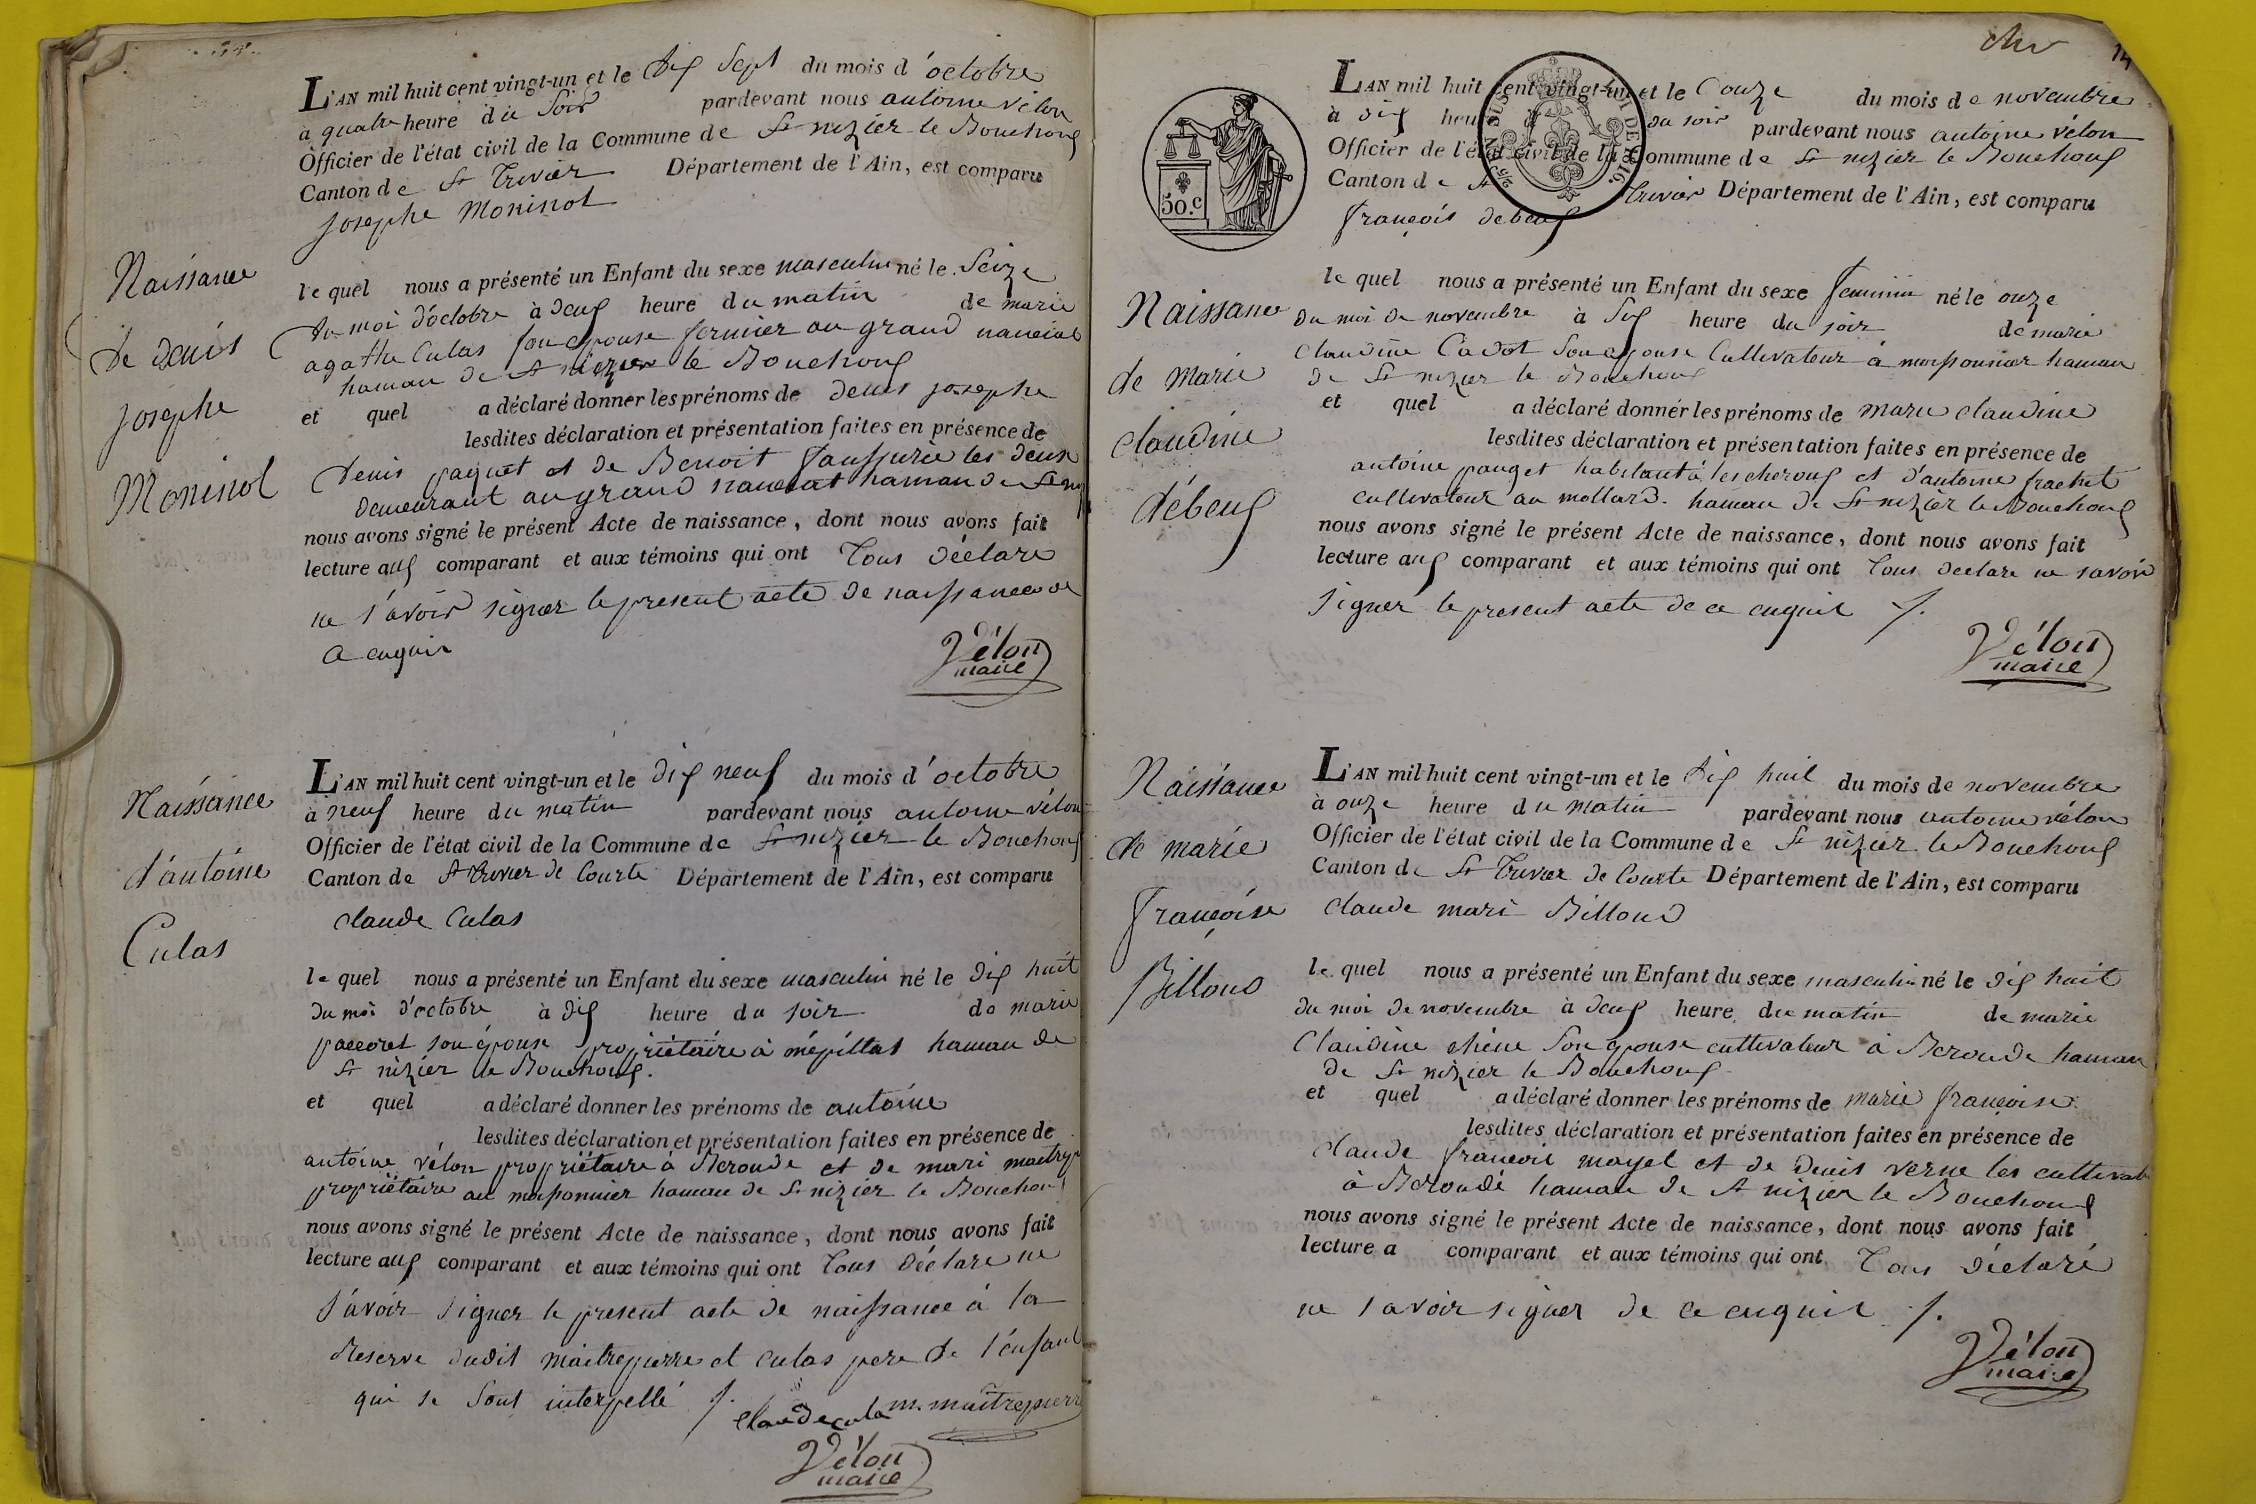 L'AN mil huit cent vingt-un et le dix sept du mois d'octobre
à quatre heure du soir pardevant nous antoine vélon
Officier de l'état civil de la Commune de St nizier le Bouchoux
Canton de St Trivier Département de l'Ain, est comparu
Josephe Moninot
Naissance
de denis
Josephe
Moninot
le quel nous a présenté un Enfant du sexe masculin né le Seize
du moi d'octobre à deux heure du matin de marie
agathe Culas son epouse fermier au grand
hamau de St nizier le Bouchoux
et quel a déclaré donner les prénoms de denis josephe
lesdites déclaration et présentation faites en présence de
denis paquet et de Benoit les deux
demeurant au grand hamau de St
nous avons signé le présent Acte de naissance, dont nous avons fait
lecture aux comparant et aux témoins qui ont tous déclare
ne s'avoir signer le present acte de naissance de
a enquir
Vélon
maire
Naissance
d'antoine
Culas
L'AN mil huit cent vingt-un et le dix neuf du mois d'octobre
à neuf heure du matin pardevant nous antoine vélon
Officier de l'état civil de la Commune de St nizier le Bouchoux
Canton de St trivier de Courte Département de l'Ain, est comparu
claude Culas
le quel nous a présenté un Enfant du sexe masculin né le dix huit
du moi d'octobre à dix heure du soir de marie
paccoret son épouse propriétaire à mépillat hamau de
St nizier le Bouchoux.
et quel a déclaré donner les prénoms de antoine
lesdites déclaration et présentation faites en présence de
antoine vélon propriétaire à Beroude et de mari
propriétaire au moissonnier hamau de St nizier le Bouchoux
nous avons signé le présent Acte de naissance, dont nous avons fait
lecture aux comparant et aux témoins qui ont tous déclare ne
s'avoir signer le present acte de naissance à la
Reserve dudit maitrepierre et culas pere de l'enfant
qui se sont interpellé
claude cula m. maîtrepierre
Vélon
maire
chv
14
50.c
L'AN mil huit cent vingt-un et le onze du mois de novembre
à dix heure du soir pardevant nous antoine vélon
Officier de l'état civil de la Commune de St nizier le Bouchoux
Canton de St trivier Département de l'Ain, est comparu
françois debeuf
Naissance
de marie
claudine
débeuf
le quel nous a présenté un Enfant du sexe feminin né le onze
du moi de novembre à six heure du soir de marie
claudine Cadot son epouse Cultivateur à moissonnier hamau
de St nizier le Bouchoux
et quel a déclaré donner les prénoms de marie claudine
lesdites déclaration et présentation faites en présence de
antoine pauget habitant à les cheroux et d'antoine frachet
cultivateur au mollard. hamau de St nizier le Bouchoux
nous avons signé le présent Acte de naissance, dont nous avons fait
lecture aux comparant et aux témoins qui ont tous declare ne savoir
signer le present acte de ce enquir
Vélon
maire
Naissance
de marie
françoise
Billoud
L'AN mil huit cent vingt-un et le dix huit du mois de novembre
à onze heure du matin pardevant nous antoine vélon
Officier de l'état civil de la Commune de St nizier le Bouchoux
Canton de St Trivier de Courte Département de l'Ain, est comparu
claude mari Billoud
le quel nous a présenté un Enfant du sexe masculin né le dix huit
du moi de novembre à deux heure du matin de marie
Claudine chêne son epouse cultivateur à Beroude hamau
de St nizier le Bouchoux
et quel a déclaré donner les prénoms de marie françoise
lesdites déclaration et présentation faites en présence de
claude françois mayet et de denis verne les
à Beroudé hamau de St nizier le Bouchoux
nous avons signé le présent Acte de naissance, dont nous avons fait
lecture a comparant et aux témoins qui ont Tous déclaré
ne savoir signer de ce enquir
Vélon
maire